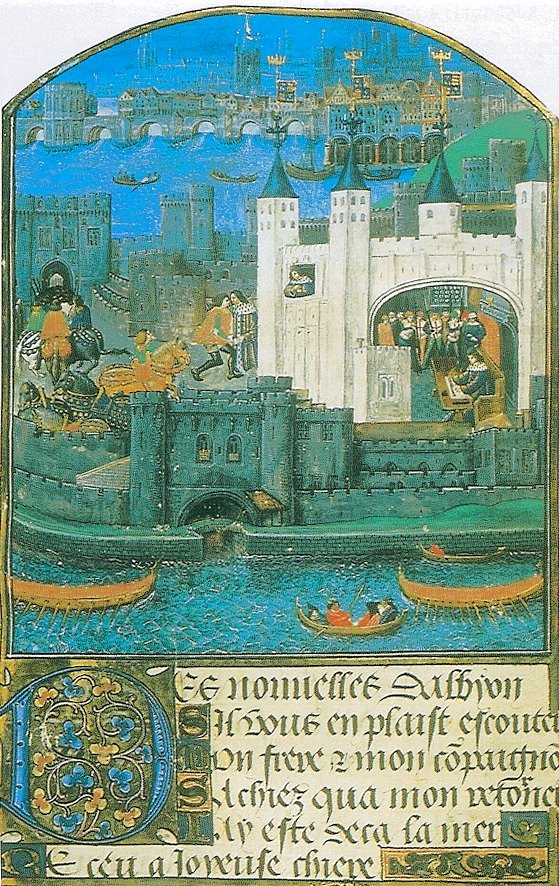 Des nouuelles Dalbyon
Sil vous en plaist escoute
Mon frere & mon cōpaigno
Sachiez qua mon
Jay este deca la mer
Receu a Joyeuse chiere